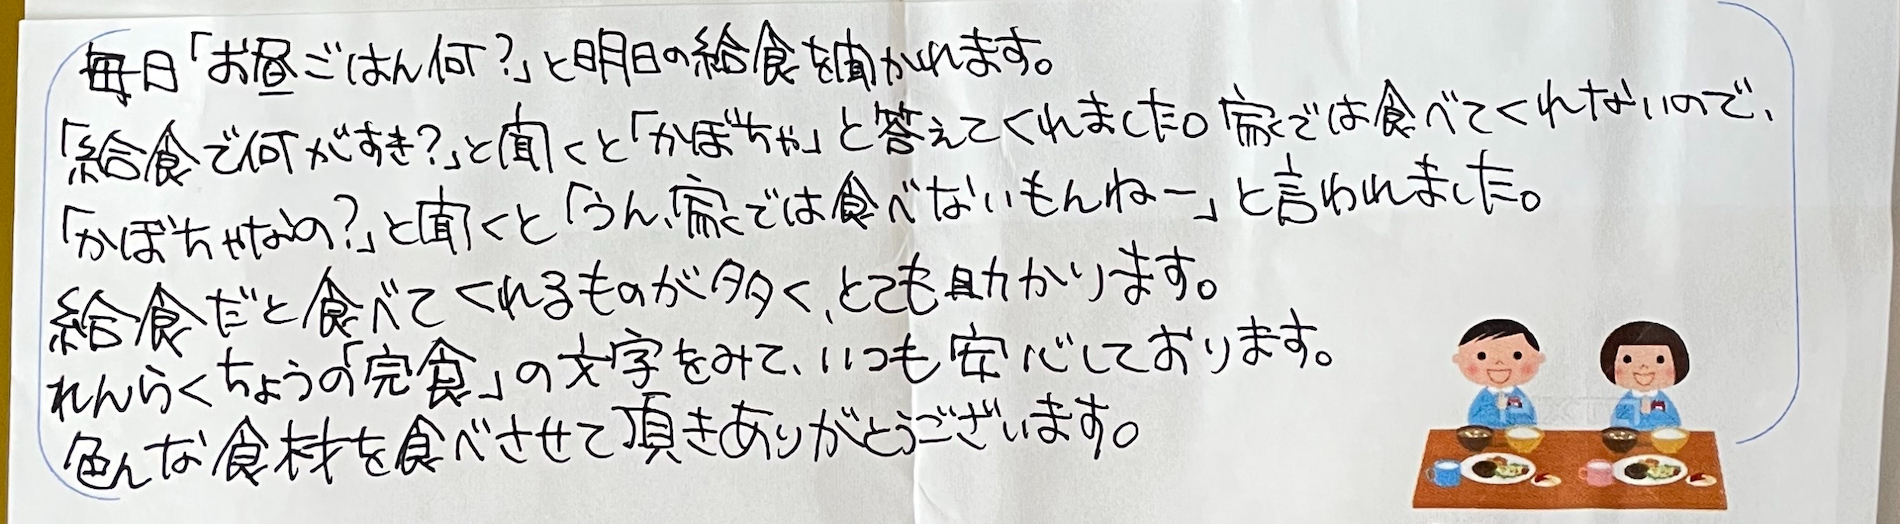 毎日「お昼ごはん何?」と明日の給食を聞かれます。
「給食で何がすき?」と聞くと「かぼちゃ」と答えてくれました。家では食べてくれないので、
「かぼちゃなの?」と聞くと「うん、家では食べないもんねー」と言われました。
給食だと食べてくれるものが多く、とても助かります。
れんらくちょうの「完食」の文字をみて、いつも安心しております。
色んな食材を食べさせて頂きありがとうございます。